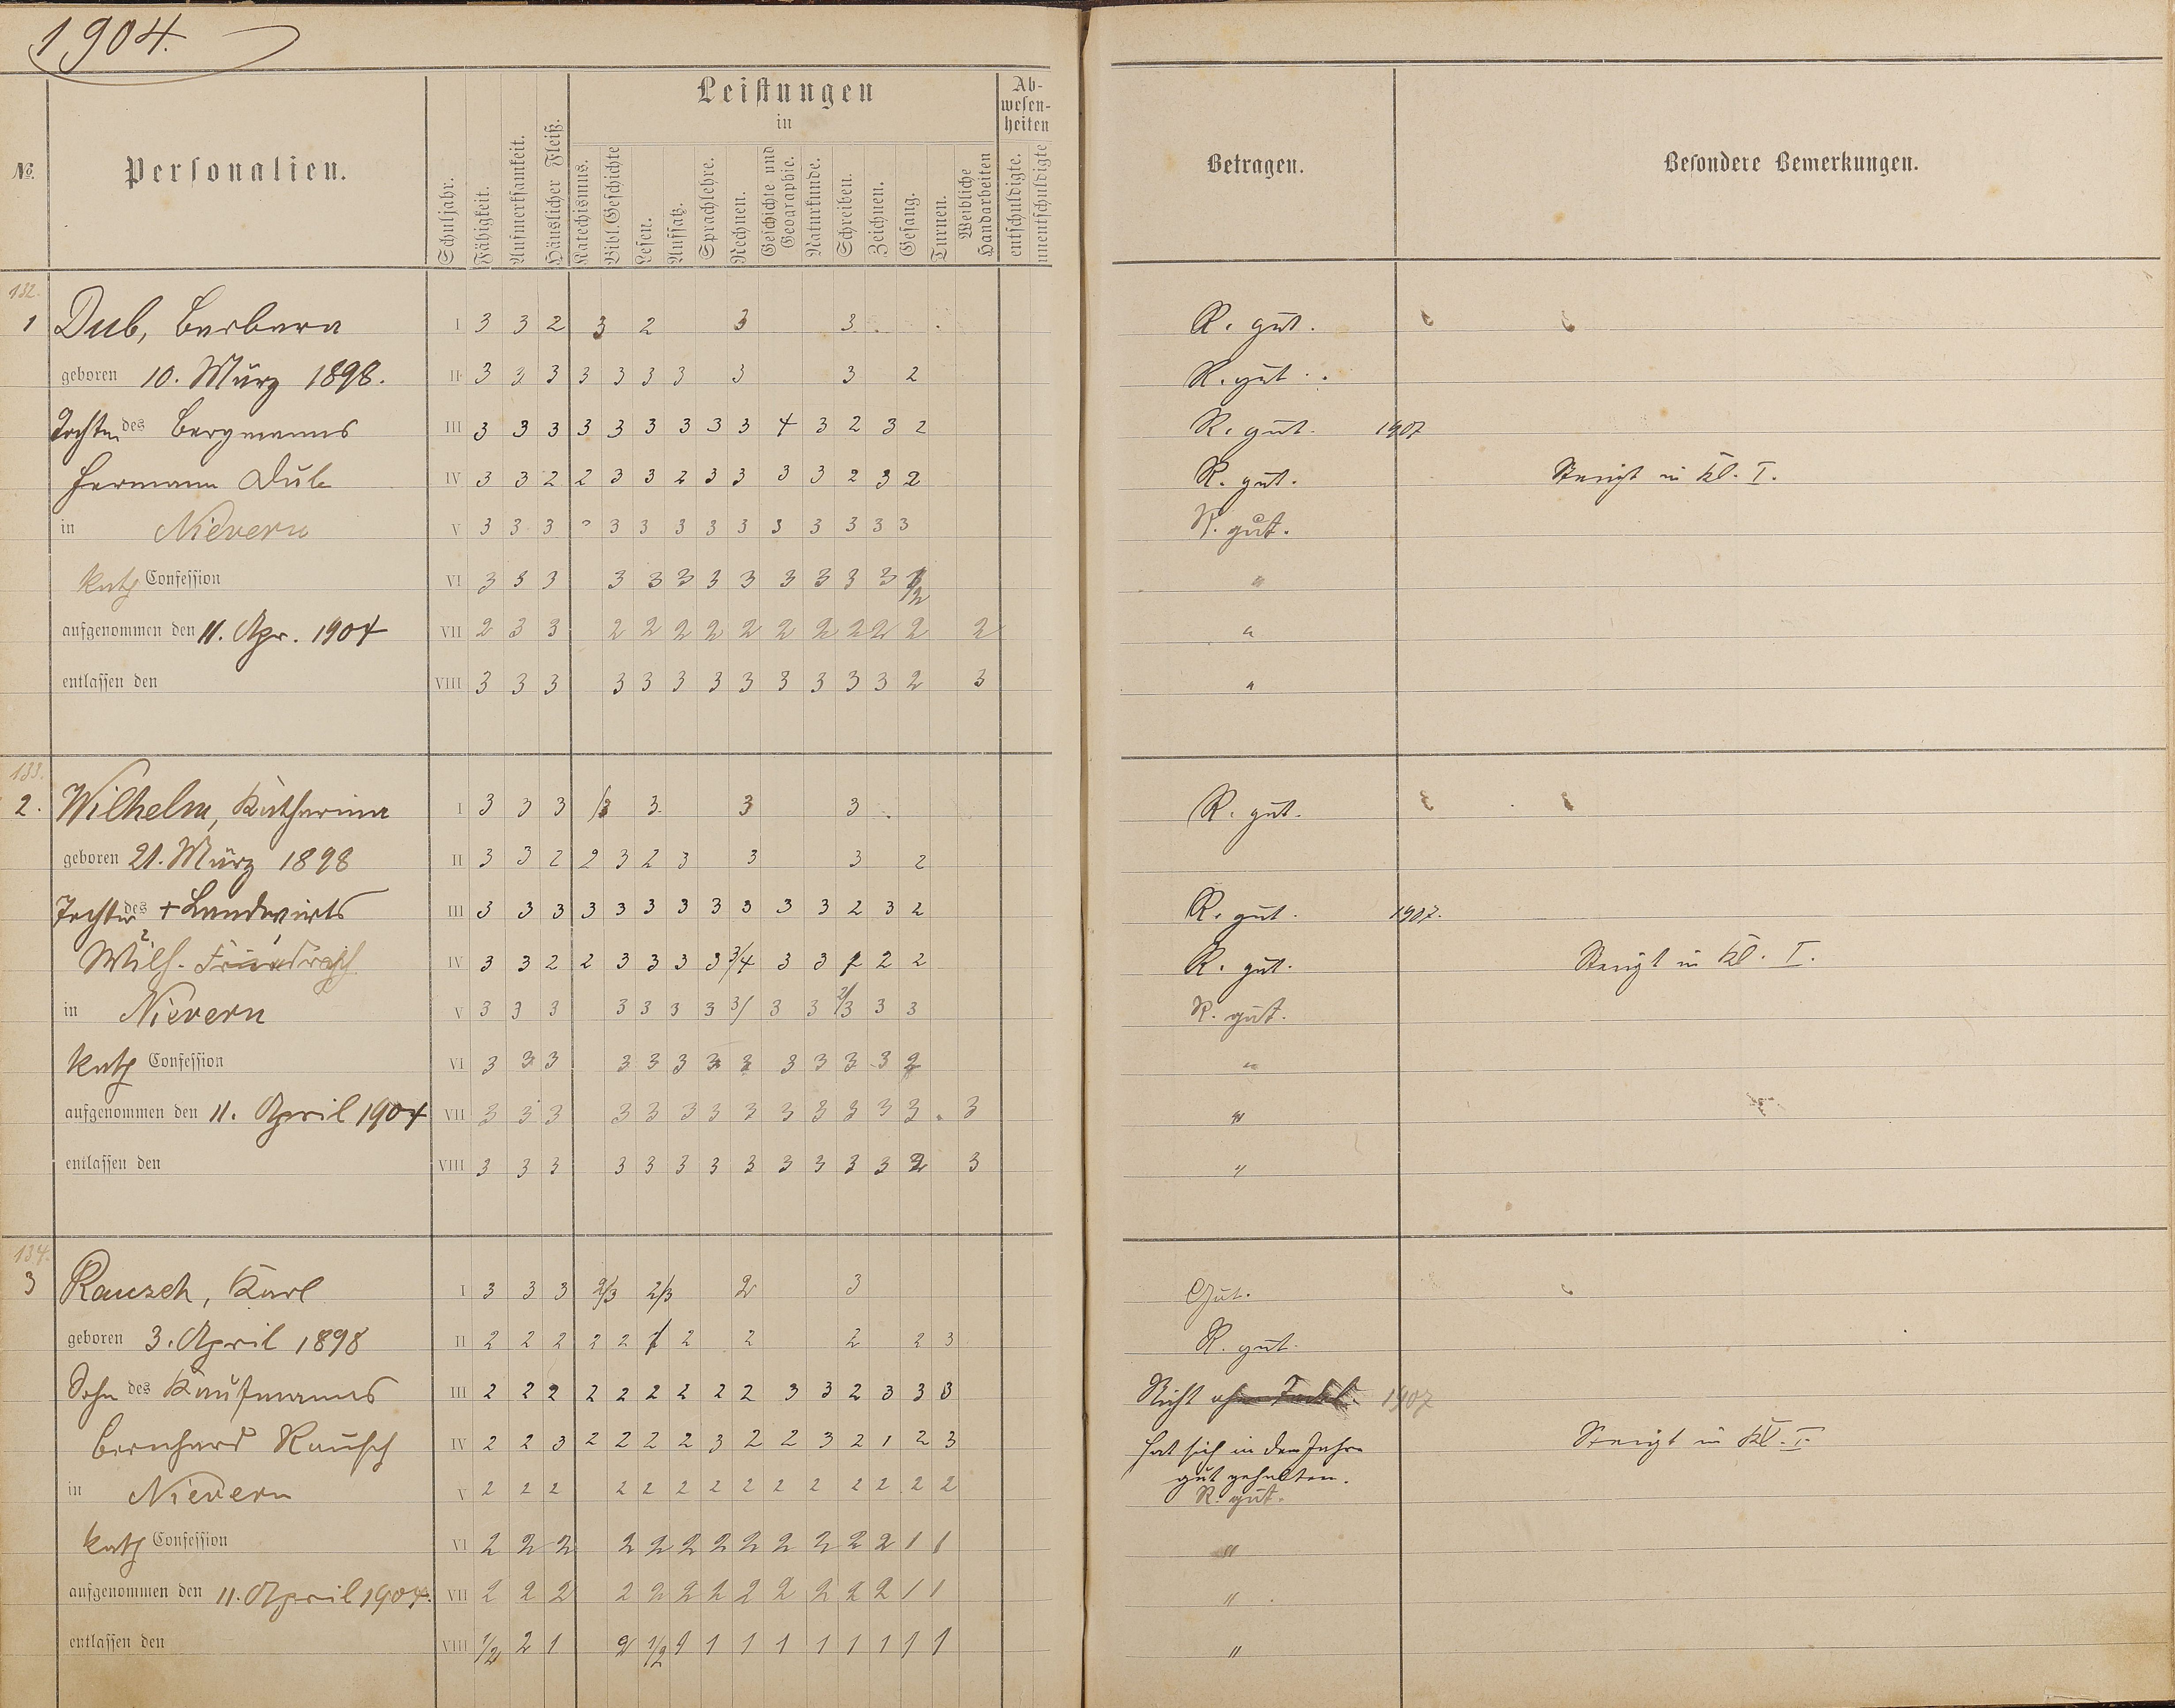 1904.
No.
Personalien.
Schuljahr.
Fähigkeit.
Aufmerksamkeit.
Häuslicher Fleiß.
Leistungen
in
Katechismus.
Bibl. Geschichte
Lesen.
Aufsatz.
Sprachlehre.
Rechnen.
Geschichte und Geographie.
Naturkunde.
Schreiben.
Zeichnen.
Gesang.
Turnen.
Weibliche Handarbeiten
Ab-
wesen-
heiten
entschuldigte.
unentschuldigte
Betragen.
Besondere Bemerkungen.
132.
1 Dub, Barbara I 3 3 2 3 2 3 3 R. gut.
geboren 10. März 1898. II 3 3 3 3 3 3 3 3 3 2 R. gut.
Tochter des Bergmanns III 3 3 3 3 3 3 3 3 3 4 3 2 3 2 R. gut. 1907
Hermann Dub IV 3 3 2 2 3 3 2 3 3 3 3 2 3 2 R. gut. Steigt in Kl. I.
in Nievern V 3 3 3 3 3 3 3 3 3 3 3 3 3 R. gut.
kath Confession VI 3 3 3 3 3 3 3 3 3 3 3 3 "
aufgenommen den 11. Apr. 1904 VII 2 3 3 2 2 2 2 2 2 2 2 2 2 2 "
entlassen den VIII 3 3 3 3 3 3 3 3 3 3 3 3 2 3 "
133.
2. Wilhelm, Katharina I 3 3 3 3 3 3 3 R. gut.
geboren 21. März 1898 II 3 3 2 2 3 2 3 3 3 2
Tochter des + Landwirts III 3 3 3 3 3 3 3 3 3 3 3 2 3 2 R. gut. 1907.
Wilh. IV 3 3 2 2 3 3 3 3 3/4 3 3 2 2 2 R. gut. Steigt in Kl. I.
in Nievern V 3 3 3 3 3 3 3 3/ 3 3 2/3 3 3 R. gut.
kath Confession VI 3 3 3 3 3 3 3 3 3 3 3 3 2 "
aufgenommen den 11. April 1904 VII 3 3 3 3 3 3 3 3 3 3 3 3 3 3 "
entlassen den VIII 3 3 3 3 3 3 3 3 3 3 3 3 2 3 "
134.
3 Rausch, Karl I 3 3 3 2/3 2/3 2 3 Gut.
geboren 3. April 1898 II 2 2 2 2 2 2 2 2 2 3 R. gut.
Sohn des Kaufmanns III 2 2 2 2 2 2 2 2 2 3 3 2 3 3 3 Nicht ohne Tadel. 1907
Bernhard Rausch IV 2 2 3 2 2 2 2 3 2 2 3 2 1 2 3 Hat sich in dem Jahre Steigt in Kl. I.
gut gehalten.
in Nievern V 2 2 2 2 2 2 2 2 2 2 2 2 2 2 R. gut.
kath Confession VI 2 2 2 2 2 2 2 2 2 2 2 2 1 1 "
aufgenommen den 11. April 1904. VII 2 2 2 2 2 2 2 2 2 2 2 2 1 1 "
entlassen den VIII 1/2 2 1 2 1/2 1 1 1 1 1 1 1 1 1 "